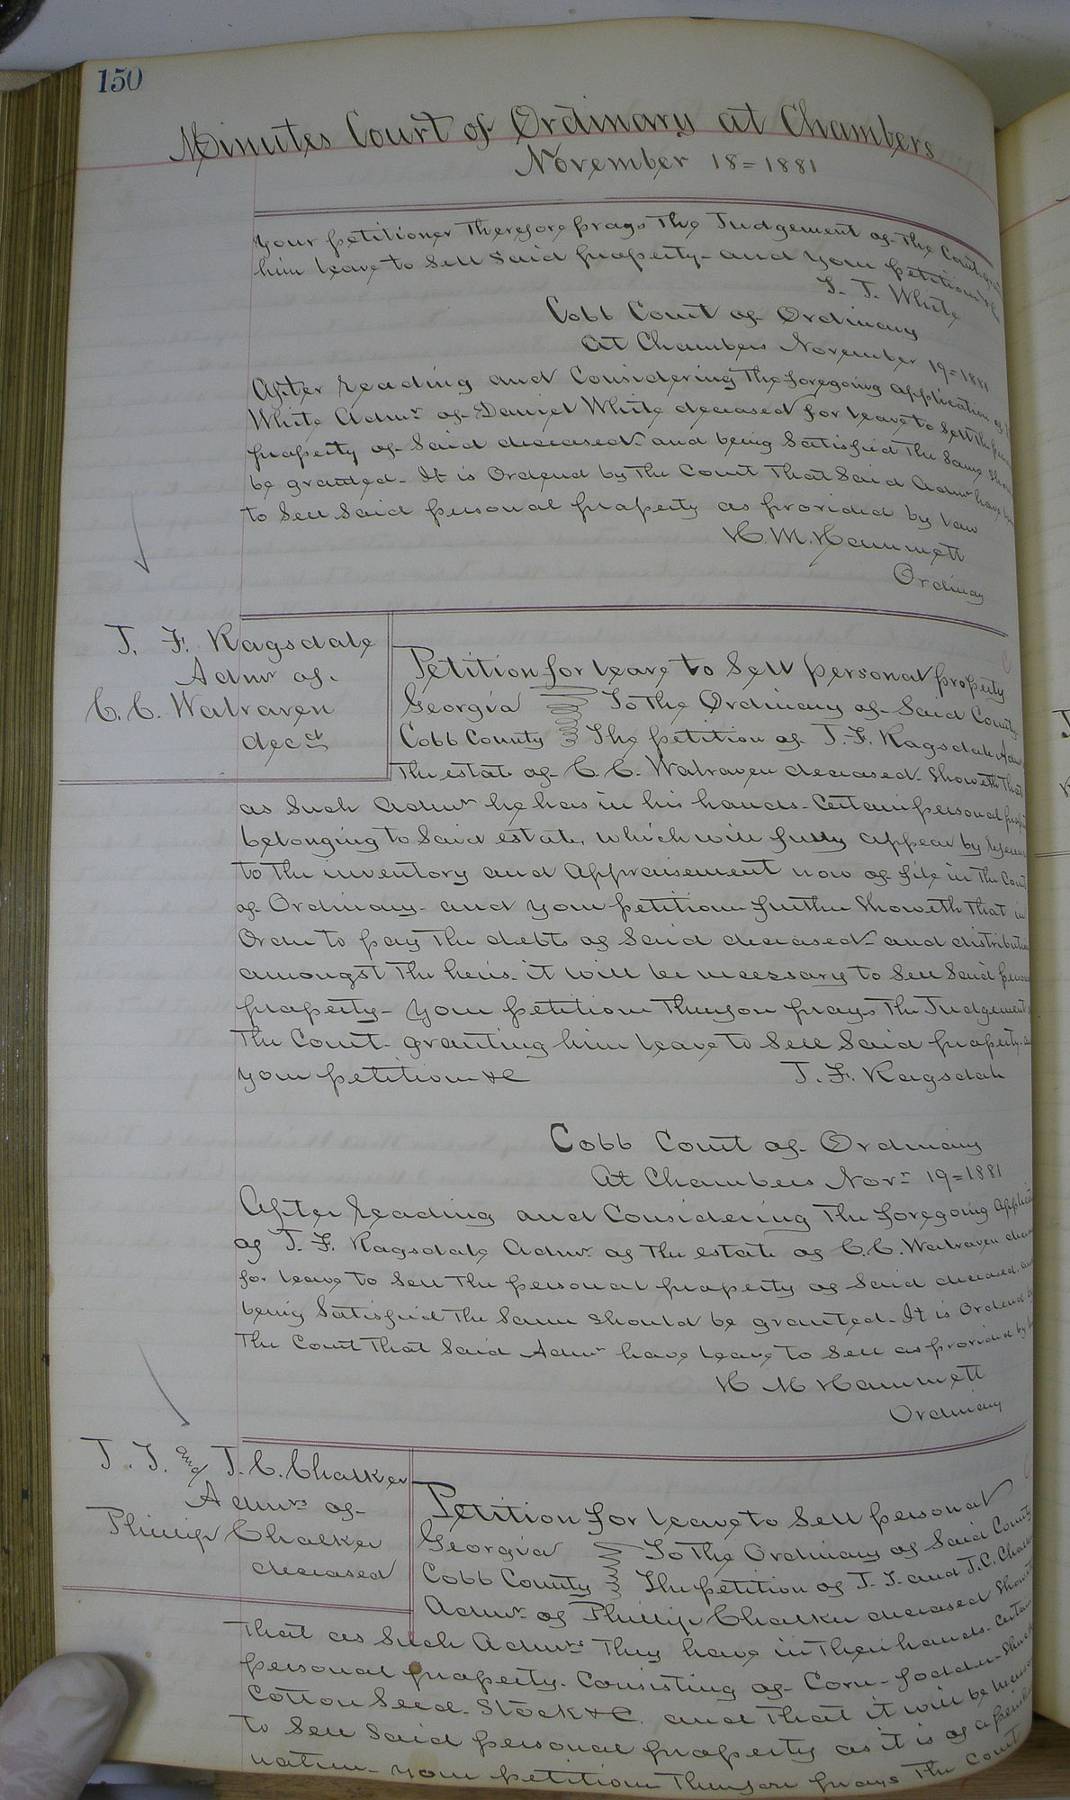 150
Minutes Court of Ordinary at Chambers
November 18=1881
Your petitioner Therefore prays The Judgement of The Court
him leave to Sell Said property- and your petitioner &c
T. White
Cobb Court of Ordinary
At Chambers November 19=1881
After reading and Considering The foregoing application of
White Admr of Daniel White deceased for leave to Sell The
property of Said deceased- and being Satisfied The Same
be granted- It is Ordered by The Court That Said Admr have
to Sell Said personal property as provided by law
H. M. Hammett
Ordinary
J. F. Ragsdale
Admr of
C. C. Walraven
decd
Petition for leave to Sell personal property
Georgia To The Ordinary of Said County
Cobb County The petition of J. F. Ragsdale Admr
The estate of C. C. Walraven deceased. Showeth That
as Such Admr he has in his hands- Certain personal
belonging to Said estate, which will fully appear by
to The inventory and Appraisement now of file in The Court
of Ordinary- and your petitioner further Showeth That in
Order to pay The debts of Said deceased- and
amongst The heirs- it will be necessary to Sell Said
property- Your petitioner Therefore prays The Judgement
The Court- granting him leave to Sell Said property-
your petitioner &C J. F. Ragsdale
Cobb Court of Ordinary
At Chambers Novr 19=1881
After reading and Considering The foregoing
of J. F. Ragsdale Admr of The estate of C. C. Walraven
for leave to Sell The personal property of Said deceased.
being Satisfied The Same Should be granted- It is Ordered
The Court That Said Admr have leave to Sell as provided by
H M Hammett
Ordinary
J. T. and J. C. Chalker
Admrs of
Phillip Chalker
deceased
Petition for leave to Sell personal
Georgia To The Ordinary of Said County
Cobb County The petition of J. T. and J. C.
Admrs of Phillip Chalker deceased
That as Such Admrs They have in Their hands-
personal property. Consisting of Corn- fodder-
Cotton Seed- Stock &C. and That it will be
to Sell Said personal property as it is of a
nature- your petitioners Therefore prays The Court